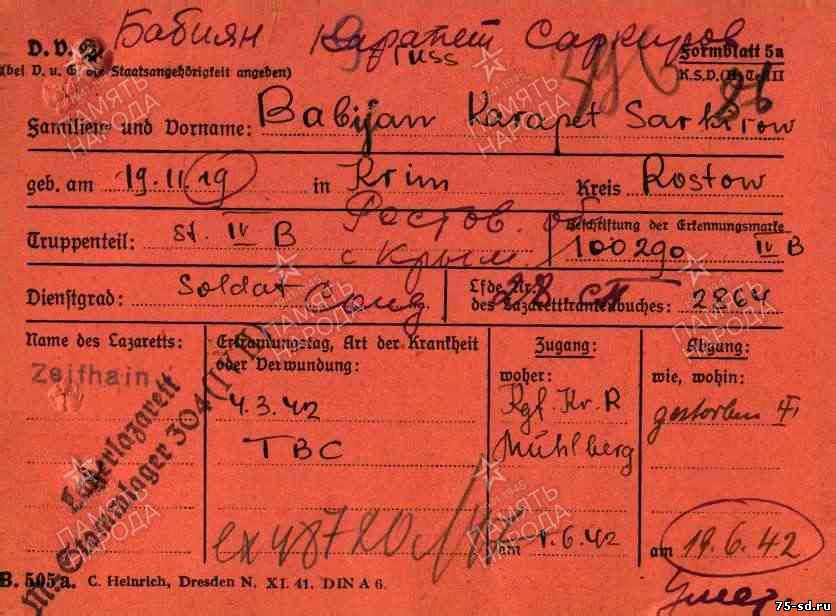 Бабиян Карапет Саркиров
D. V. russ Formblatt 5a
(bei D. u. G. die Staatsangehörigkeit angeben) K.S.D. (H) Teil II
86
Familien- und Vorname: Babijan Karapet Sarkirow
geb. am 19.11.19 in Krim Kreis Rostow
Truppenteil: St. IV B Ростов. об. Beschriftung der Erkennungsmarke
с Крым 100290 IV B
Dienstgrad: Soldat Солд Lfde Nr. des Lazarettkrankenbuches: 2864
Name des Lazaretts: Erkrankungstag, Art der Krankheit oder Verwundung: Zugang: Abgang:
woher: wie, wohin:
Zeithain
4.3.42 Kgf. Kr. R gestorben
TBC Mühlberg
Lagerlazarett
Stammlager 304 (IV H)
ex 48720
vom 1.6.42 am 19.6.42
умер
B. 505a. C. Heinrich, Dresden N. XI. 41. DIN A 6.
ПАМЯТЬ НАРОДА
75-sd.ru